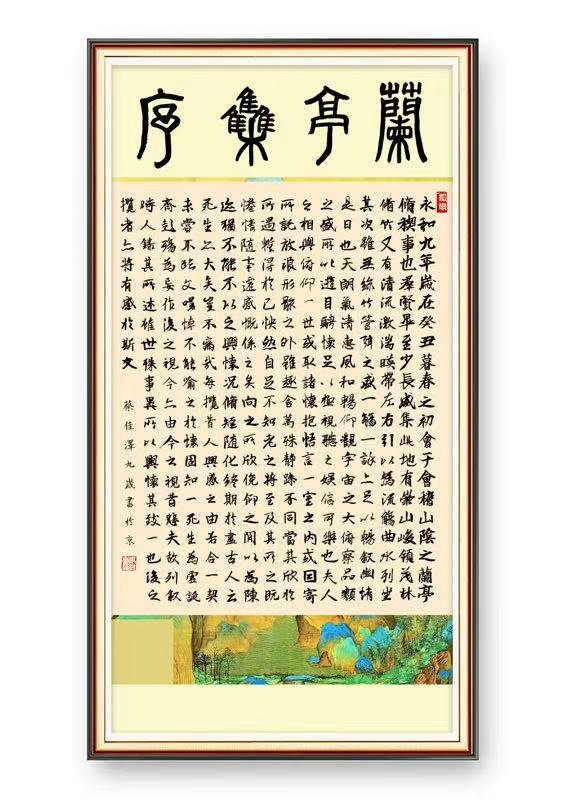 蘭亭雧序
永和九年歲在癸丑暮春之初會于會稽山陰之蘭亭
脩稧事也羣賢畢至少長咸集此地有崇山峻領茂林
脩竹又有清流激湍暎帶左右引以為流觴曲水列坐
其次雖無絲竹管弦之盛一觴一詠亦足以暢叙幽情
是日也天朗氣清惠風和暢仰觀宇宙之大俯察品類
之盛所以遊目騁懷足以極視聽之娛信可樂也夫人
之相與俯仰一世或取諸懷抱悟言一室之內或因寄
所託放浪形骸之外雖趣舍萬殊靜躁不同當其欣於
所遇暫得於己快然自足不知老之將至及其所之既
惓情隨事遷感慨係之矣向之所欣俛仰之間以為陳
迹猶不能不以之興懷況脩短隨化終期於盡古人云
死生亦大矣豈不痛哉每攬昔人興感之由若合一契
未嘗不臨文嗟悼不能喻之於懷固知一死生為虛誕
齊彭殤為妄作後之視今亦由今之視昔悲夫故列叙
時人錄其所述雖世殊事異所以興懷其致一也後之
攬者亦將有感於斯文
蔡佳澤九歲書於京